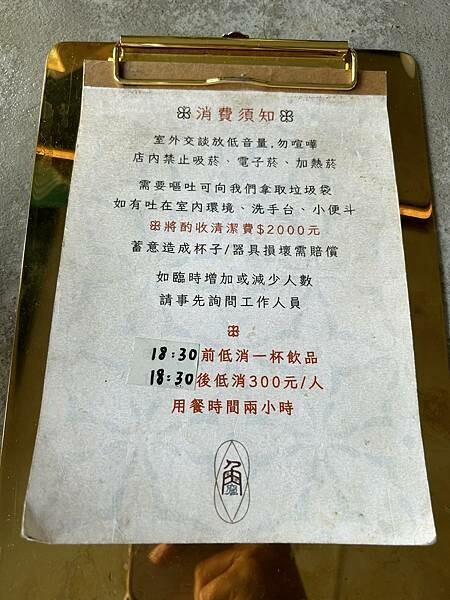 消費須知
室外交談放低音量,勿喧嘩
店內禁止吸菸、電子菸、加熱菸
需要嘔吐可向我們拿取垃圾袋
如有吐在室內環境、洗手台、小便斗
將酌收清潔費$2000元
蓄意造成杯子/器具損壞需賠償
如臨時增加或減少人數
請事先詢問工作人員
18:30前低消一杯飲品
18:30後低消300元/人
用餐時間兩小時